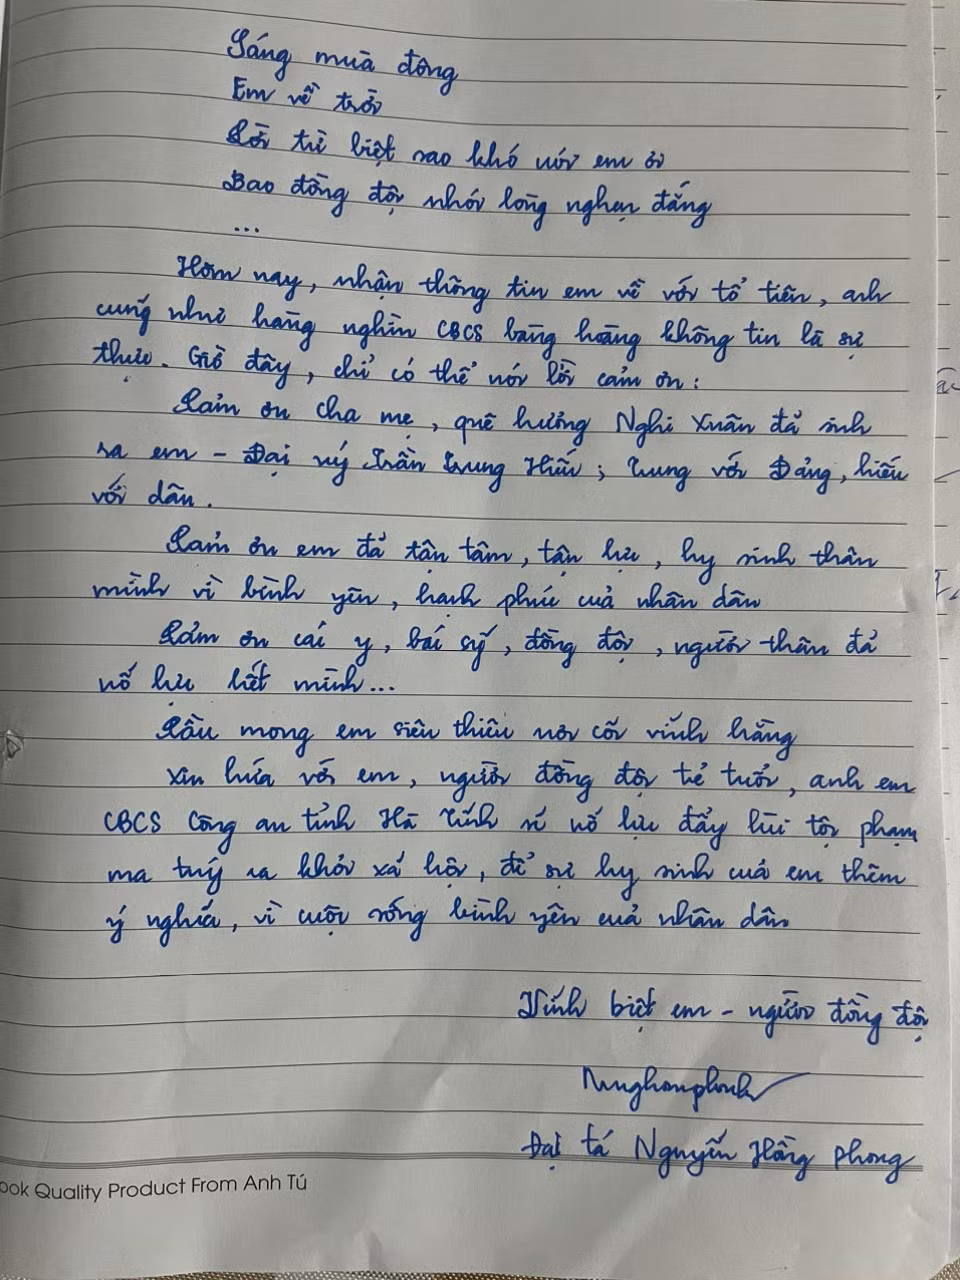 Sáng mùa đông
Em về trời
Lời từ biệt sao khó với em ơi
Bao đồng đội nhói lòng nghẹn đắng
...
Hôm nay, nhận thông tin em về với tổ tiên, anh
cũng như hàng nghìn CBCS bàng hoàng không tin là sự
thực. Giờ đây, chỉ có thể nói lời cảm ơn:
Cảm ơn cha mẹ, quê hương Nghi Xuân đã sinh
ra em - Đại uý Trần Trung Hiếu; trung với Đảng, hiếu
với dân.
Cảm ơn em đã tận tâm, tận lực, hy sinh thân
mình vì bình yên, hạnh phúc của nhân dân
Cảm ơn cái y, bác sỹ, đồng đội, người thân đã
nỗ lực hết mình...
Cầu mong em siêu thiêu nơi cõi vĩnh hằng
Xin hứa với em, người đồng đội trẻ tuổi, anh em
CBCS Công an tỉnh Hà Tĩnh sẽ nỗ lực đẩy lùi tội phạm
ma tuý ra khỏi xã hội, để sự hy sinh của em thêm
ý nghĩa, vì cuộc sống bình yên của nhân dân
Vĩnh biệt em - người đồng đội
Đại tá Nguyễn Hồng Phong
ook Quality Product From Anh Tú